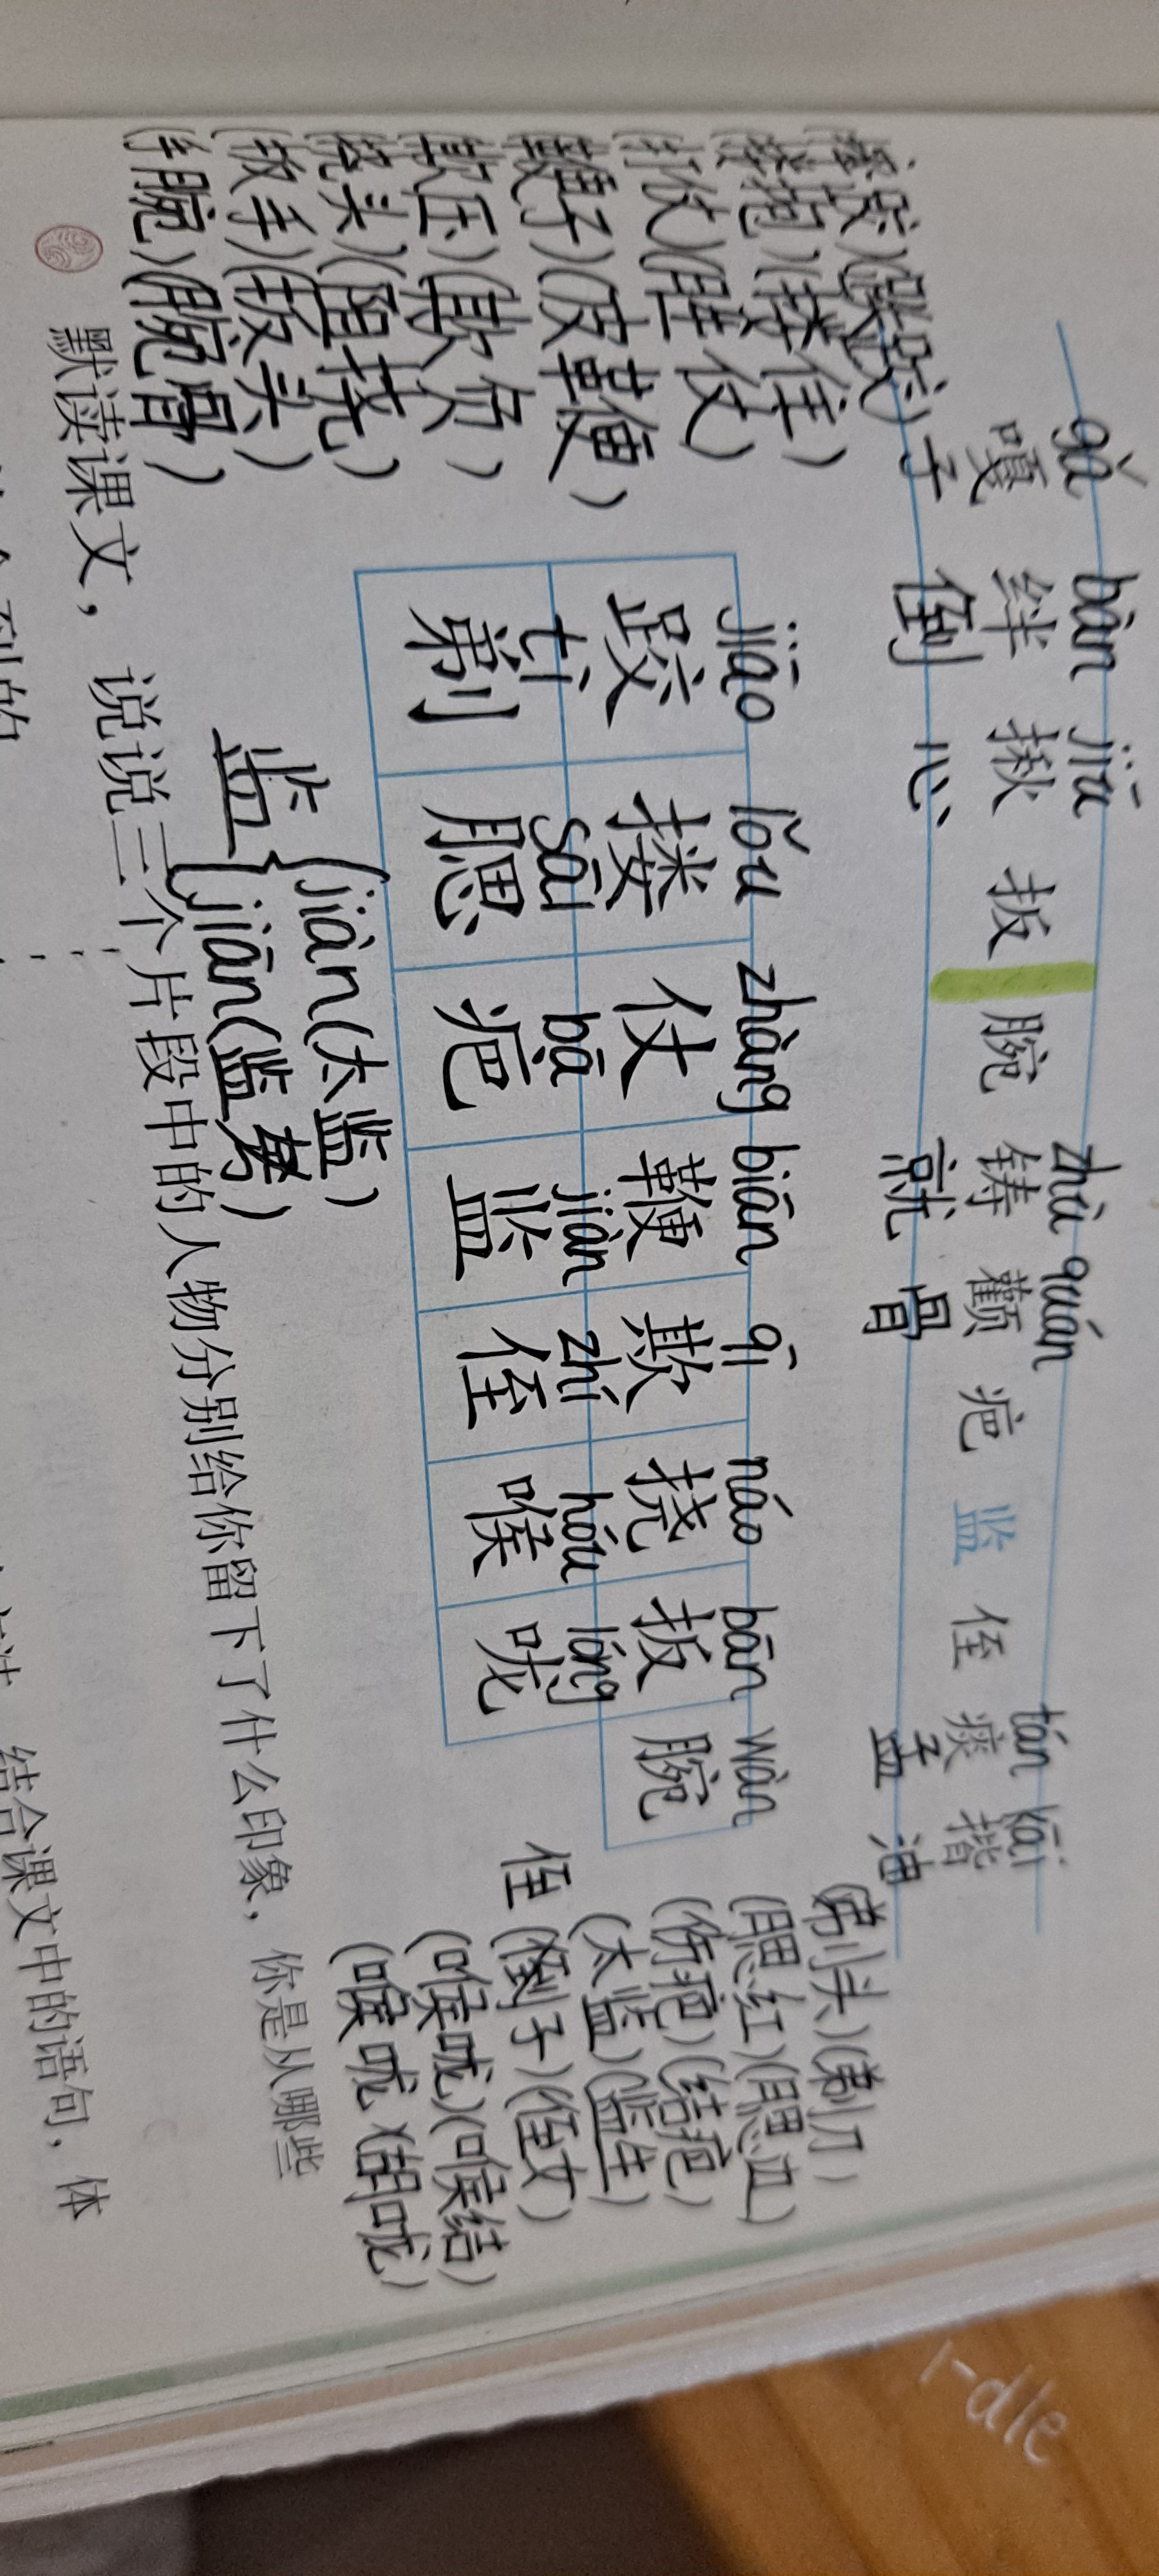 gǎ bàn jiū zhù quán tán kāi
嘎 绊 揪 扳 腕 铸 颧 疤 监 侄 痰 揩
子 倒 心 就 骨 盂 油
jiāo lǒu zhàng biān qī náo bān wàn
跤 搂 仗 鞭 欺 挠 扳 腕
tì sāi bā jiàn zhí hóu lóng
剃 腮 疤 监 侄 喉 咙
(摔跤)
(搂抱)(搂住)
(打仗)(胜仗)
(鞭子)(皮革鞭)
(欺压)(欺负)
(挠头)(阻挠)
(扳手)(扳头)
(手腕)(腕骨)
(剃头)(剃刀)
(腮红)
(伤疤)(结疤)
(太监)(监生)
侄(侄子)(侄女)
(喉咙)(喉结)
(喉咙)(胡咙)
jiàn(太监)
监
jiān(监考)
默读课文，说说三个片段中的人物分别给你留下了什么印象，你是从哪些
结合课文中的语句，体